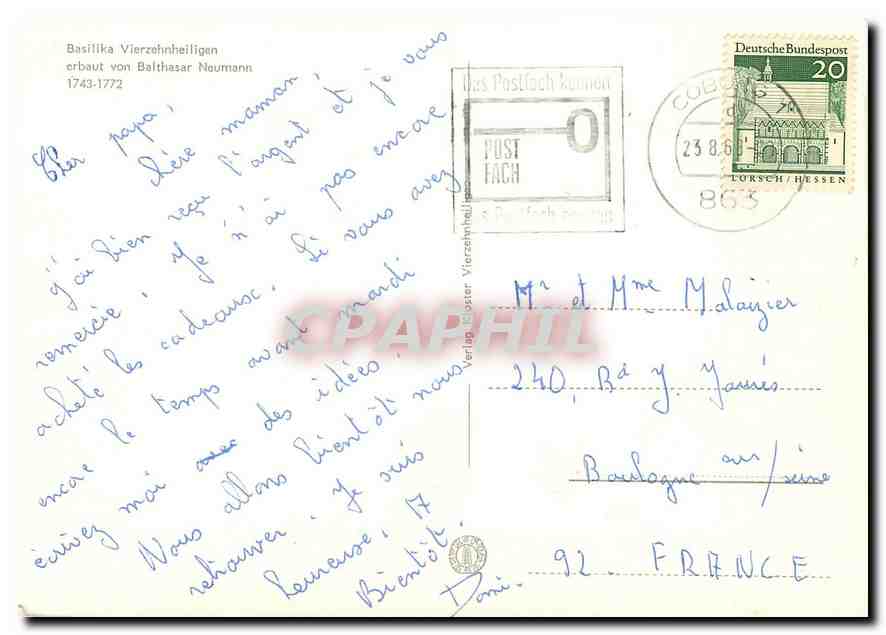 Basilika Vierzehnheiligen
erbaut von Balthasar Neumann
1743-1772
Cher papa,
chère maman,
J'ai bien reçu l'argent et je vous
remercie. Je n'ai pas encore
acheté les cadeaux. Si vous avez
encore le temps avant mardi
écrivez moi avec des idées.
Nous allons bientôt nous
retrouver. Je suis
heureuse. A
Bientôt.
Domi.
Verlag Kloster Vierzehnheiligen
Das Postfach können
POST
FACH
COBURG
23.8.6
863
Deutsche Bundespost
20
LORSCH/HESSEN
Mr et Mme Malaizier
240, Bd J. Jaurès
Boulogne sur/seine
92. FRANCE
CPAPHIL